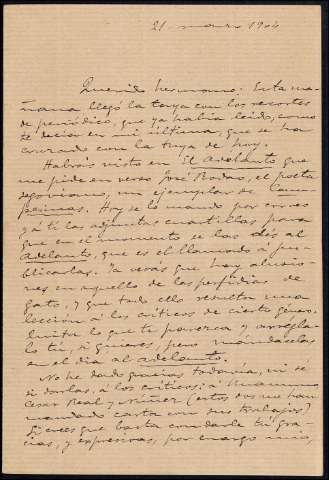 21 marzo 1904
Querido hermano: Esta ma-
ñana llegó la tuya con los recortes
de periódico, que ya había leido, como
te decía en mi última, que se ha
cruzado con la tuya de hoy.
Habrás visto en El Adelanto que
me pide en verso José Rodao, el poeta
segoviano, un ejemplar de Cam-
pesinas. Hoy se lo mando por correo
y á ti las adjuntas cuartillas para
que en el momento se las dés al
Adelanto, que es el llamado á pu-
blicarlas. Ya verás que hay alusio-
nes en aquello de las perfidias de
gato, y que todo ello resulta una
lección á los críticos de cierto género.
lo que te parezca y arregla-
lo tú, si quieres, pero mándaselas
en el día al Adelanto.
No he dado gracias todavía, ni sé
si darlas, á los críticos; á Unamuno
Cesar Real y Núñez (estos dos me han
mandado carta con sus trabajos)
Si crees que basta con darle tú gra-
cias, y expresivas, por encargo mío,